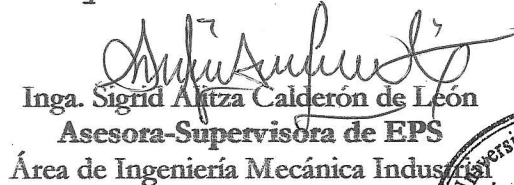 Inga. Sigrid Alitza Calderón de León
Asesora-Supervisora de EPS
Área de Ingeniería Mecánica Industrial